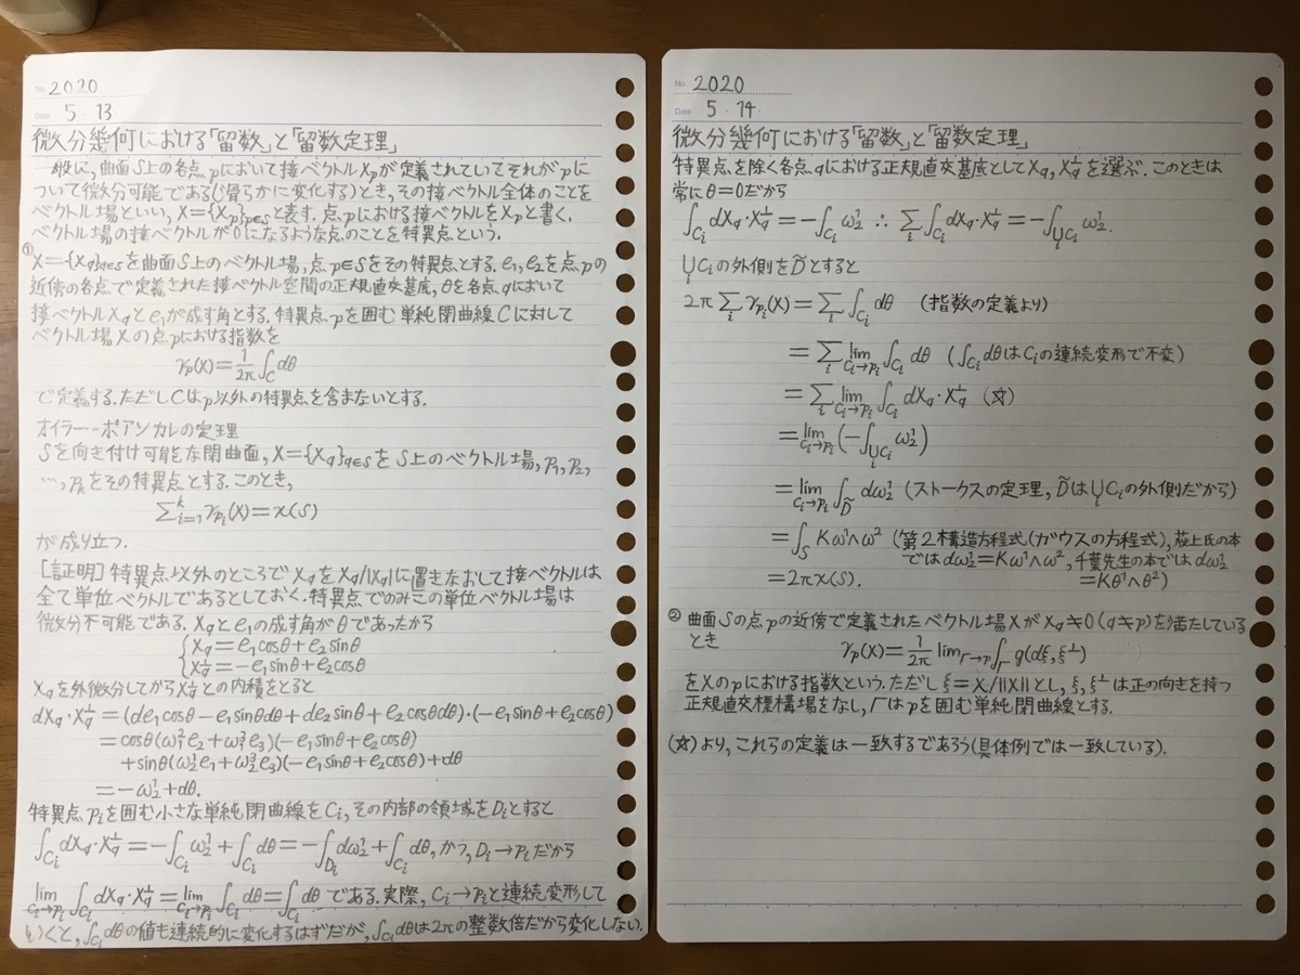 No. 2020
Date 5・13
微分幾何における「留数」と「留数定理」
一般に,曲面S上の各点pにおいて接ベクトルXpが定義されていてそれがpに
ついて微分可能である(滑らかに変化する)とき,その接ベクトル全体のことを
ベクトル場といい, X={Xp}p∈Sと表す. 点pにおける接ベクトルをXpと書く.
ベクトル場の接ベクトルが0になるような点のことを特異点という.
① X={Xq}q∈Sを曲面S上のベクトル場, 点p∈Sをその特異点とする. e₁,e₂を点pの
近傍の各点で定義された接ベクトル空間の正規直交基底, θを各点qにおいて
接ベクトルXqとe₁が成す角とする. 特異点pを囲む単純閉曲線Cに対して
ベクトル場Xの点pにおける指数を
γp(X)=1/2π ∫_C dθ
で定義する. ただしCはp以外の特異点を含まないとする.
オイラー-ポアンカレの定理
Sを向き付け可能な閉曲面, X={Xq}q∈SをS上のベクトル場, p₁,p₂,
…,pkをその特異点とする. このとき,
∑_{i=1}^k γ_{pi}(X)=χ(S)
が成り立つ.
[証明] 特異点以外のところでXqをXq/|Xq|に置きなおして接ベクトルは
全て単位ベクトルであるとしておく. 特異点でのみこの単位ベクトル場は
微分不可能である. Xqとe₁の成す角がθであったから
{Xq=e₁cosθ+e₂sinθ
{Xq^⊥=-e₁sinθ+e₂cosθ
Xqを外微分してからXq^⊥との内積をとると
dXq・Xq^⊥=(de₁cosθ-e₁sinθdθ+de₂sinθ+e₂cosθdθ)・(-e₁sinθ+e₂cosθ)
=cosθ(ω₁²e₂+ω₁³e₃)(-e₁sinθ+e₂cosθ)
+sinθ(ω₂¹e₁+ω₂³e₃)(-e₁sinθ+e₂cosθ)+dθ
=-ω₂¹+dθ.
特異点piを囲む小さな単純閉曲線をCi, その内部の領域をDiとすると
∫_{Ci} dXq・Xq^⊥=-∫_{Ci} ω₂¹+∫_{Ci} dθ=-∫_{Di} dω₂¹+∫_{Ci} dθ, かつ, Di→piだから
lim_{Ci→pi} ∫_{Ci} dXq・Xq^⊥=lim_{Ci→pi} ∫_{Ci} dθ=∫_{Ci} dθ である. 実際, Ci→piと連続変形して
いくと, ∫_{Ci} dθの値も連続的に変化するはずだが, ∫_{Ci} dθは2πの整数倍だから変化しない.
No. 2020
Date 5・14
微分幾何における「留数」と「留数定理」
特異点を除く各点qにおける正規直交基底としてXq,Xq^⊥を選ぶ. このときは
常にθ=0だから
∫_{Ci} dXq・Xq^⊥=-∫_{Ci} ω₂¹ ∴ ∑_i ∫_{Ci} dXq・Xq^⊥=-∫_{∪_i Ci} ω₂¹.
∪_i Ciの外側をD̃とすると
2π∑_i γ_{pi}(X)=∑_i ∫_{Ci} dθ (指数の定義より)
=∑_i lim_{Ci→pi} ∫_{Ci} dθ (∫_{Ci} dθはCiの連続変形で不変)
=∑_i lim_{Ci→pi} ∫_{Ci} dXq・Xq^⊥ (☆)
=lim_{Ci→pi} (-∫_{∪_i Ci} ω₂¹)
=lim_{Ci→pi} ∫_{D̃} dω₂¹ (ストークスの定理, D̃は∪_i Ciの外側だから)
=∫_S Kω¹∧ω² (第2構造方程式(ガウスの方程式), 荻上氏の本
では dω₂¹=Kω¹∧ω², 千葉先生の本では dω₂¹
=2πχ(S). =Kθ¹∧θ²)
② 曲面Sの点pの近傍で定義されたベクトル場XがXq≠0(q≠p)を満たしている
とき γp(X)=1/2π lim_{Γ→p} ∫_Γ g(dξ,ξ^⊥)
をXのpにおける指数という. ただしξ=X/||X||とし, ξ,ξ^⊥は正の向きを持つ
正規直交標構場をなし, Γはpを囲む単純閉曲線とする.
(☆)より, これらの定義は一致するであろう(具体例では一致している).